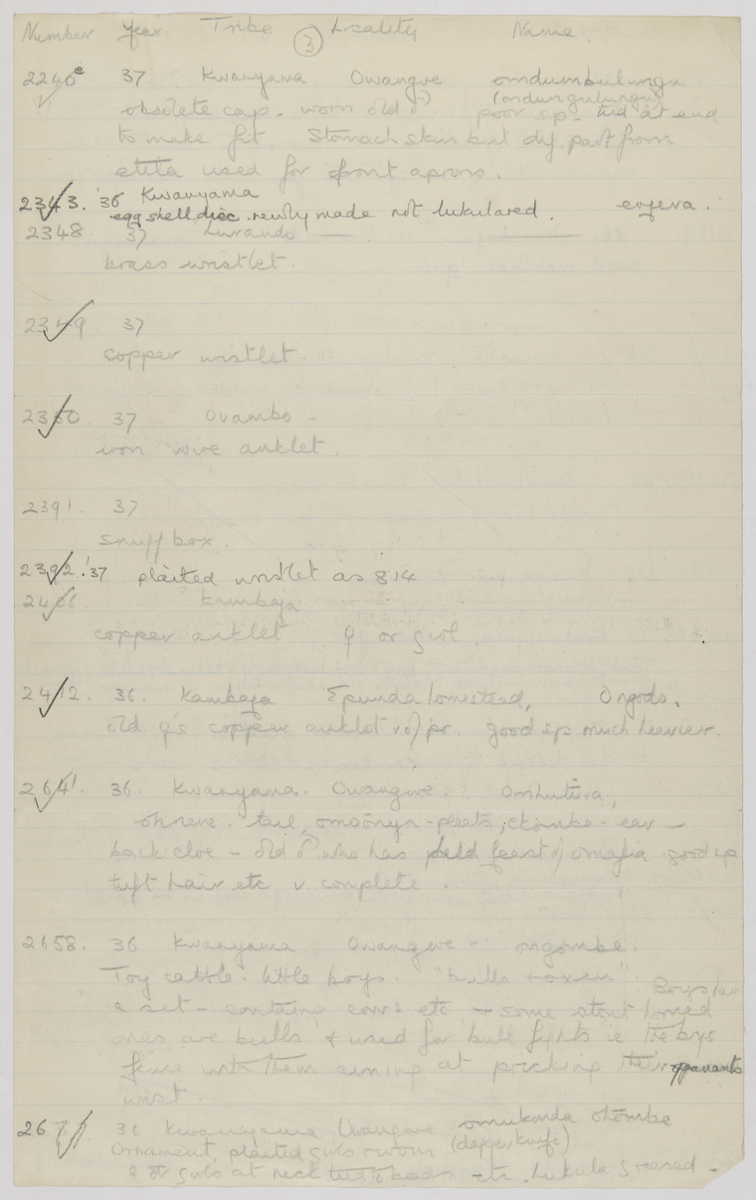 Number Year Tribe ③ Locality Name.
2240e 37 Kwanyama Owangwe omdumbulungu
(ondungulungu)
obsolete cap. worn old ♂. poor sp. tied at end
to make fit. Stomach skin but dif. part from
etita used for front aprons.
2343. '36 Kwanyama
egg shell disc. newly made not lukulared. enjeva.
2348 37
brass wristlet.
2349 37
copper wristlet.
2350 37 Ovambo -
iron wire anklet.
2391. 37
snuff box.
2392. '37 plaited wristlet as 814
2406. Kambaja
copper anklet ♀ or girl.
2412. 36. Kambaja Epunda homestead, Ongods.
old ♀'s copper anklet 1 of pr. good sp. much heavier.
2641. 36. Kwanyama. Owangwe. Omhutiva,
tail, omsonya - pleats, ekombe - ear -
back - old ♂ who has held feast of good sp
tuft hair etc v complete.
2658. 36 Kwanyama Owangwe - ongombe.
Toy cattle. little boys. "bulls + oxen". Boys
a set - containing cows etc + some stout horned
ones are bulls + used for bull fights ie the boys
fence with them aiming at pricking their opponents
wrist.
36 Kwanyama Owangwe omukonda ohombe
(dagger knife)
Ornament, plaited girls
♀ or girls at neck tied to beads etc. lukula greased -